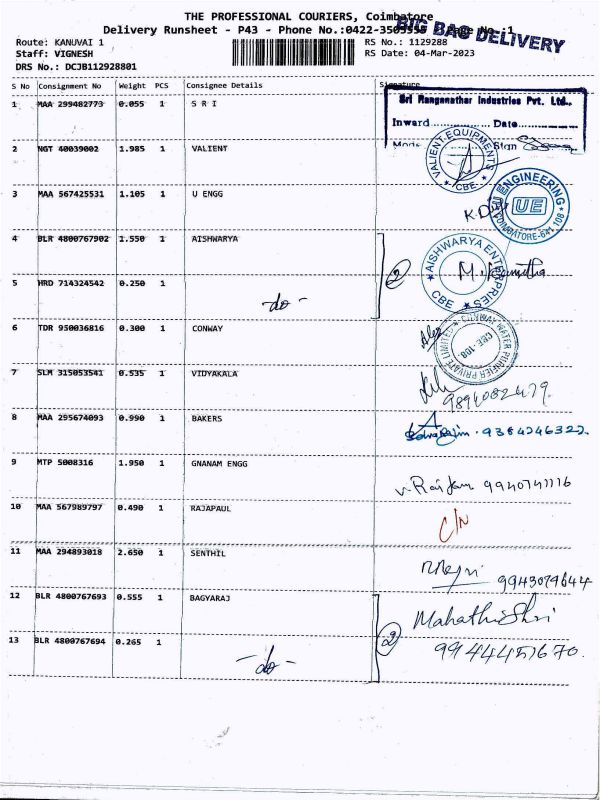 THE PROFESSIONAL COURIERS, Coimbatore
Delivery Runsheet - P43 - Phone No.:0422-3505555 Page No :1
BIG BAG DELIVERY
Route: KANUVAI 1 RS No.: 1129288
Staff: VIGNESH RS Date: 04-Mar-2023
DRS No.: DCJB112928801
S No Consignment No Weight PCS Consignee Details Signature
1 MAA 299482773 0.055 1 S R I
Sri Ranganathar Industries Pvt. Ltd.,
Inward Date
Sign
2 NGT 40039002 1.985 1 VALIENT
VALIENT EQUIPMENTS
CBE
3 MAA 567425531 1.105 1 U ENGG
ENGINEERING
UE
COIMBATORE-641 108
4 BLR 4800767902 1.550 1 AISHWARYA
2
AISHWARYA ENTERPRISES
CBE
5 HRD 714324542 0.250 1
-do-
6 TDR 950036816 0.300 1 CONWAY
CONWAY WATER PURIFIER PRIVATE LIMITED
CBE-108
7 SLM 315053541 0.535 1 VIDYAKALA
9894082479.
8 MAA 295674093 0.990 1 BAKERS
9384246322.
9 MTP 5008316 1.950 1 GNANAM ENGG
9940741116
10 MAA 567989797 0.490 1 RAJAPAUL
C/N
11 MAA 294893018 2.650 1 SENTHIL
9943079644
12 BLR 4800767693 0.555 1 BAGYARAJ
2
MahathiShri
13 BLR 4800767694 0.265 1
-do-
9944451670.